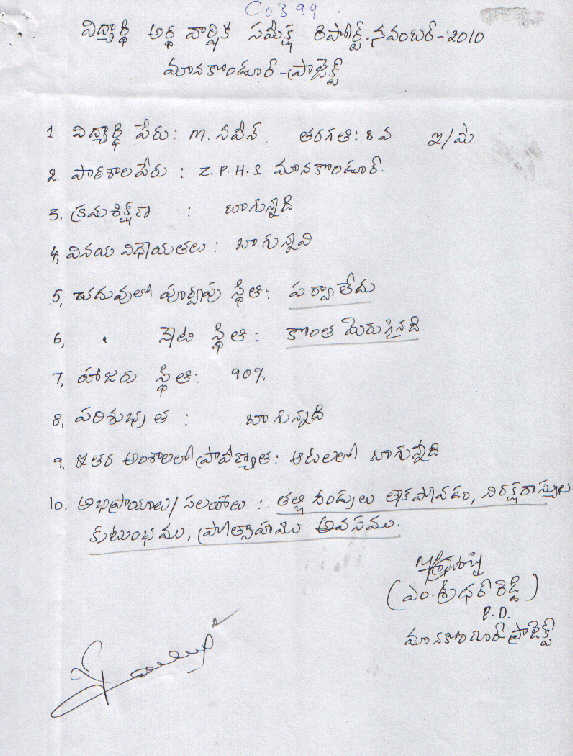 C0399
విద్యార్థి అర్ధ వార్షిక సమీక్ష రిపోర్ట్-నవంబర్-2010
మానకొండూర్-ప్రాజెక్ట్
1 విద్యార్థి పేరు: M. నవీన్. తరగతి: 8 వ ఇ/మీ
2. పాఠశాల పేరు : Z.P.H.S మానకొండూర్.
3, క్రమశిక్షణ : బాగున్నది
4, వినయ విధేయతలు : బాగున్నవి
5, చదువులో పూర్వపు స్థితి: పర్వాలేదు
6, " నేటి స్థితి : కొంత మెరుగైనది
7, హాజరు స్థితి: 90%
8, పరిశుభ్రత : బాగున్నది
9. ఇతర అంశాలలో ప్రావీణ్యత: ఆటలలో బాగున్నేది
10. అభిప్రాయాలు/సలహాలు : తల్లి దండ్రులు లేకపోవడం, నిరక్షరాస్యుల
కుటుంభము, ప్రోత్సాహము అవసము.
(ఎం.శ్రీధర్ రెడ్డి)
P.D.
మానకొండూర్ ప్రాజెక్ట్